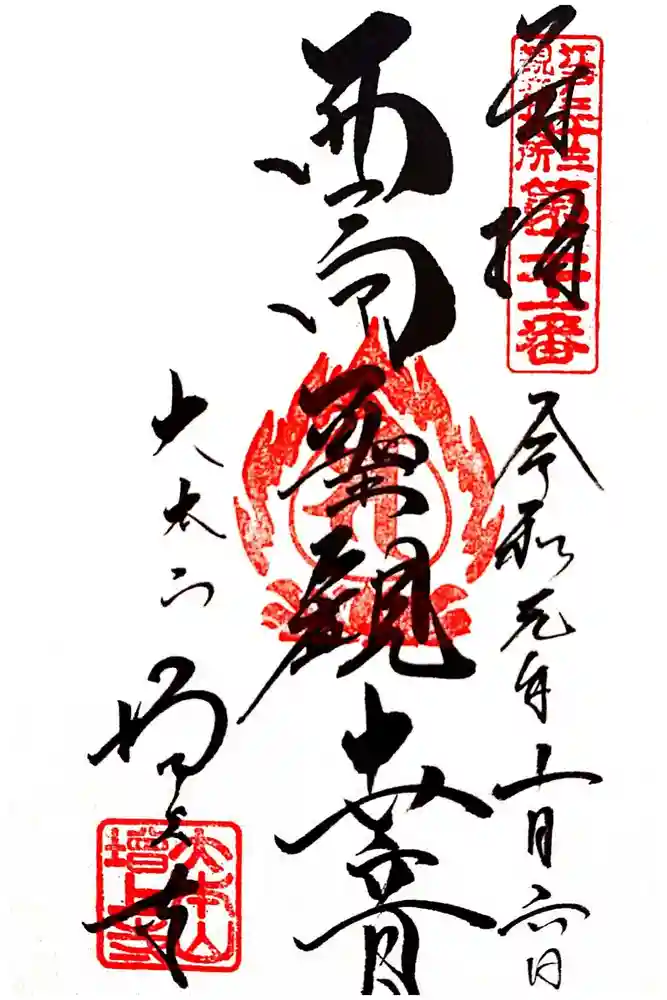 奉拝
江戸三十三
観音札所
第二十一番
令和元年十月六日
西向聖観世音
大本山
増上寺
大本山
増上寺